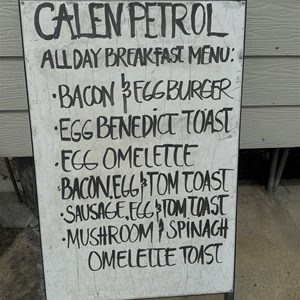 CALEN PETROL
ALLDAY BREAKFAST MENU:
·BACON & EGG BURGER
·EGG BENEDICT TOAST
·EGG OMELETTE
BACON,EGG & TOM TOAST
·SAUSAGE,EGG & TOM TOAST
·MUSHROOM & SPINAGH
OMELETTE TOAST